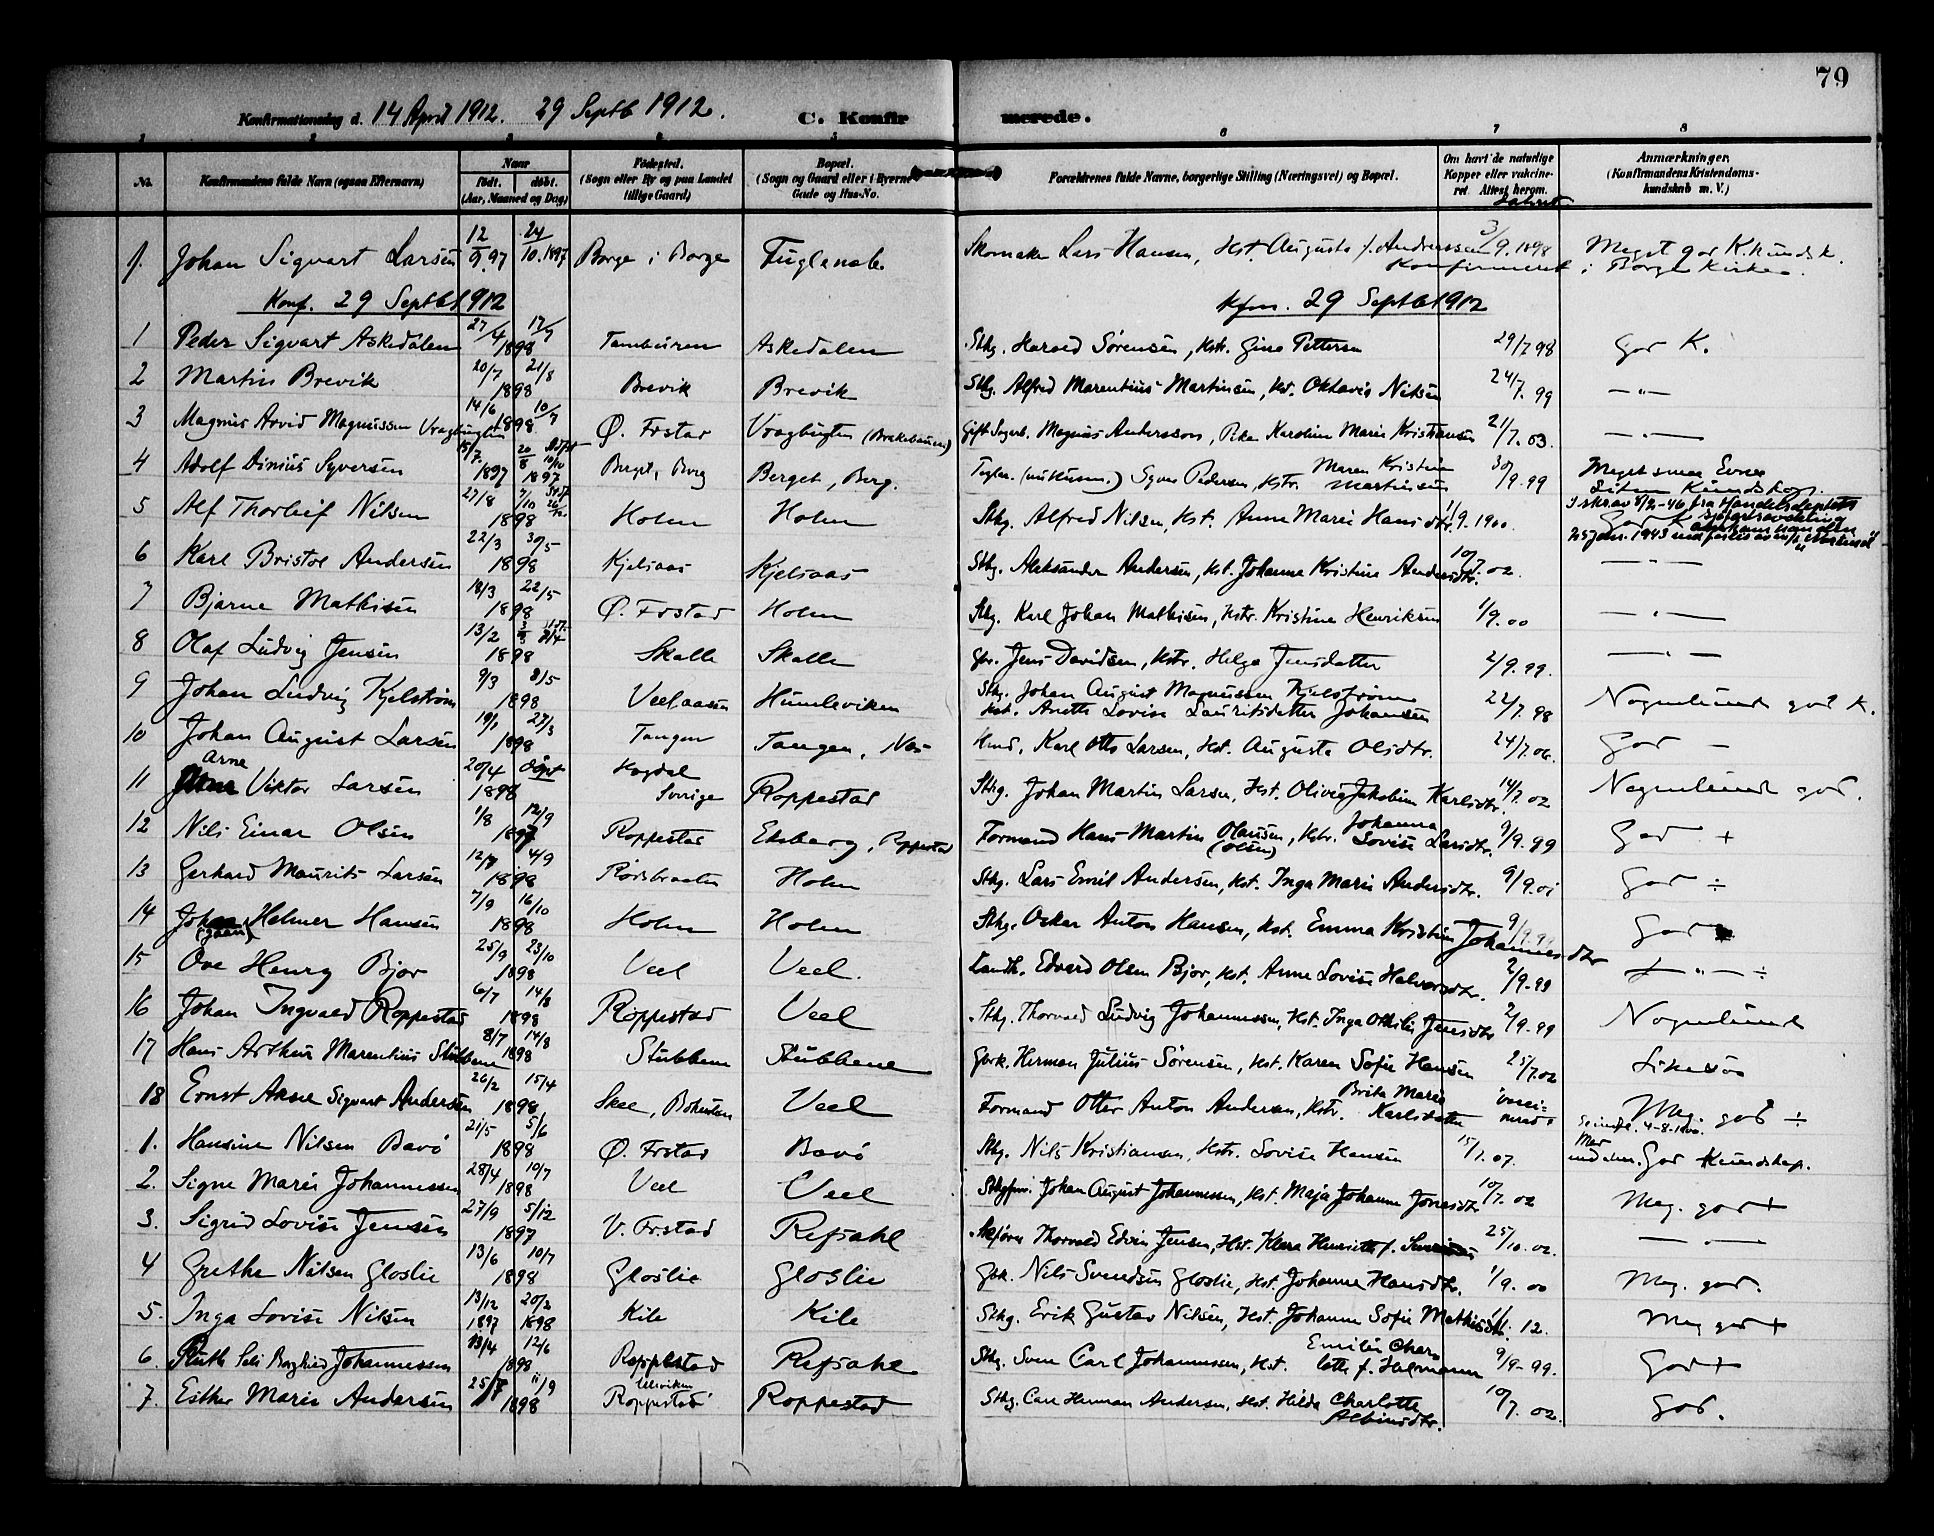 79
Konfirmationsdag d. 14 April 1912. 29 Septb 1912. C. Konfirmerede.
1 2 3 4 5 6 7 8
No. Konfirmandens fulde Navn (ogsaa Efternavn) Naar født. døbt. (Aar, Maaned og Dag) Fødested. (Sogn eller By og paa Landet tillige Gaard) Bopæl. (Sogn og Gaard eller i Byerne Gade og Hus-No. Forældrenes fulde Navne, borgerlige Stilling (Næringsvei) og Bopæl. Om havt de naturlige Kopper eller vakcineret. Attest herom. Anmærkninger. (Konfirmandens Kristendomskundskab m. V.)
1. Johan Sigvart Larsen 12/9.97 24/10.1897 Borge i Borge Fuglenab. Skomaker Lars Hansen, Hst. Augusta f. Andreassen 3/9.1898 Meget god K.kundsk.
Konfirmeret i Borge Kirke.
Konf. 29 Septb 1912 Kfm. 29 Septb 1912
1 Peder Sigvart Askedalen 27/4 17/7 1898 Tamburen Askedalen Sthg. Harald Sørensen, Hst. Gina Pettersen 29/7 98 God K.
2 Martin Brevik 20/7 21/8 1898 Brevik Brevik Sthg. Alfred Marentius Martinsen, Hst. Oktavia Nilsen 24/7.99 — „ —
3 Magnus Arvid Magnussen Vragbugten 14/6 10/7 1898 Ø. Frstad Vragbugten Magnus Andersson, Pike Karoline Marie Kristiansen 21/7.03. — „ —
4 Adolf Dinius Syversen 15/7 1897 20/8 1897 Berget, Berg Berget, Berg. Syver Pedersen, Hstr. Maren Kristine Martinsen 30/9.99 Meget smaa Evner
Liten Kundskap.
5 Alf Thorleif Nilsen 27/8 1898 Holm Holm Sthg. Alfred Nilsen, Hst. Anne Marie Hansdtr. 1/9.1900. God K.
6 Karl Bristol Andersen 22/3 30/5 1898 Kjelsaas Kjelsaas Sthg. Aleksander Andersen, Hst. Johanna Kristine Andersdtr. 10/7.02. — „ —
7 Bjarne Mathisen 18/3 22/5 1898 Ø. Frstad Holm Sthg. Karl Johan Mathisen, Hstr. Kristine Henriksen 1/9.00 — „ —
8 Olaf Ludvig Jensen 13/2 1898 Skalle Skalle Gbr. Jens Davidsen, Hstr. Helga Jensdatter 2/9.99. — „ —
9 Johan Ludvig Kjelstrøm 9/3 8/5 1898 Veelaasen Humleviken Sthg. Johan August Magnussen Kjelstrøm
Hst. Anette Lovise Lauritsdatter Johansen 22/7.98 Nogenlunde god K.
10 Johan August Larsen 19/1 27/3 1898 Tangen Tangen, Karl Otto Larsen, Hst. Augusta Olsdtr. 24/7.06. God —
11 Arne Viktor Larsen 20/4 døpt 1898 Hogdal Sverige Roppestad Sthg. Johan Martin Larsen, Hst. Olivia Jakobine Karlsdtr. 14/7.02 Nogenlunde god.
12 Nils Einar Olsen 1/8 12/9 1897 Roppestad Ekeberg, Roppestad Formand Hans Martin Olaussen (Olsen), Hstr. Johanna Lovise Larsdtr. 9/9.99 God +
13 Gerhard Maurits Larsen 12/7 4/9 1898 Rødsbraaten Holm Sthg. Lars Emil Andersen, Hst. Inga Marie Andersdtr. 9/9.01 God ÷
14 Johan Helmer Hansen 7/9 16/10 1898 Holm Holm Sthg. Oskar Anton Hansen, Hst. Emma Kristine Johannesdtr 9/9.99 God
15 Ove Henry Bjor 25/9 23/10 1898 Veel Veel. Landh. Edvard Olsen Bjor, Hst. Anne Lovise Halvorsdtr. 2/9-99 — „ — ÷
16 Johan Ingvald Roppestad 6/7 14/8 1898 Roppestad Veel Sthg. Thorvald Ludvig Johannessen, Hst. Inga Othilie Jensdtr 2/9.99 Nogenlunde
17 Hans Arthur Marentius Stubbene 8/7 14/8 1898 Stubbene Stubbene Gbrk. Herman Julius Sørensen, Hst. Karen Sofie Hansen 25/7.02 Likesaa
18 Ernst Arne Sigvart Andersen 26/2 15/4 1898 Skee, Bohuslen Veel Formand Otto Anton Andersen, Hstr. Brita Marie Karlsdatter Meg. god ÷
1. Hansine Nilsen Bavø 21/5 5/6 1898 Ø. Frstad Bavø Sthg. Nils Kristiansen, Hstr. Lovise Hansen 15/1.07. God Kundskap.
2. Signe Marie Johannessen 28/4 10/7 1898 Veel Veel Johan August Johannessen, Hst. Maja Johanne Jonasdtr 10/7.02 Meg. god +
3. Sigrid Lovise Jensen 27/9 5/12 1897 V. Frstad Refsahl Thorvald Edvin Jensen, Hst. Klara Henriette f. 25/10.02. — „ —
4 Grethe Nilsen Gloslie 13/6 10/7 1898 Gloslie Gloslie Gbk. Nils Svendsen Gloslie, Hst. Johanne Hansdtr. 1/9.00 Meg. god.
5. Inga Lovise Nilsen 13/12 1897 20/2 1898 Kile Kile Sthg. Erik Gustav Nilsen, Hst. Johanne Sofie Mathisdtr 1/1.12. Meg god +
6. Ruth Seli Borghild Johannessen 13/4 12/6 1898 Roppestad Refsahl Sthg. Sven Carl Johannessen, Hst. Emilie Charlotte f. Hermann 9/9-99. God +
7. Esther Marie Andersen 25/7 11/9 1898 Ulleviken Roppestad Roppestad Sthg. Carl Herman Andersen, Hst. Hilda Charlotte Albinsdtr. 10/7.02. God.